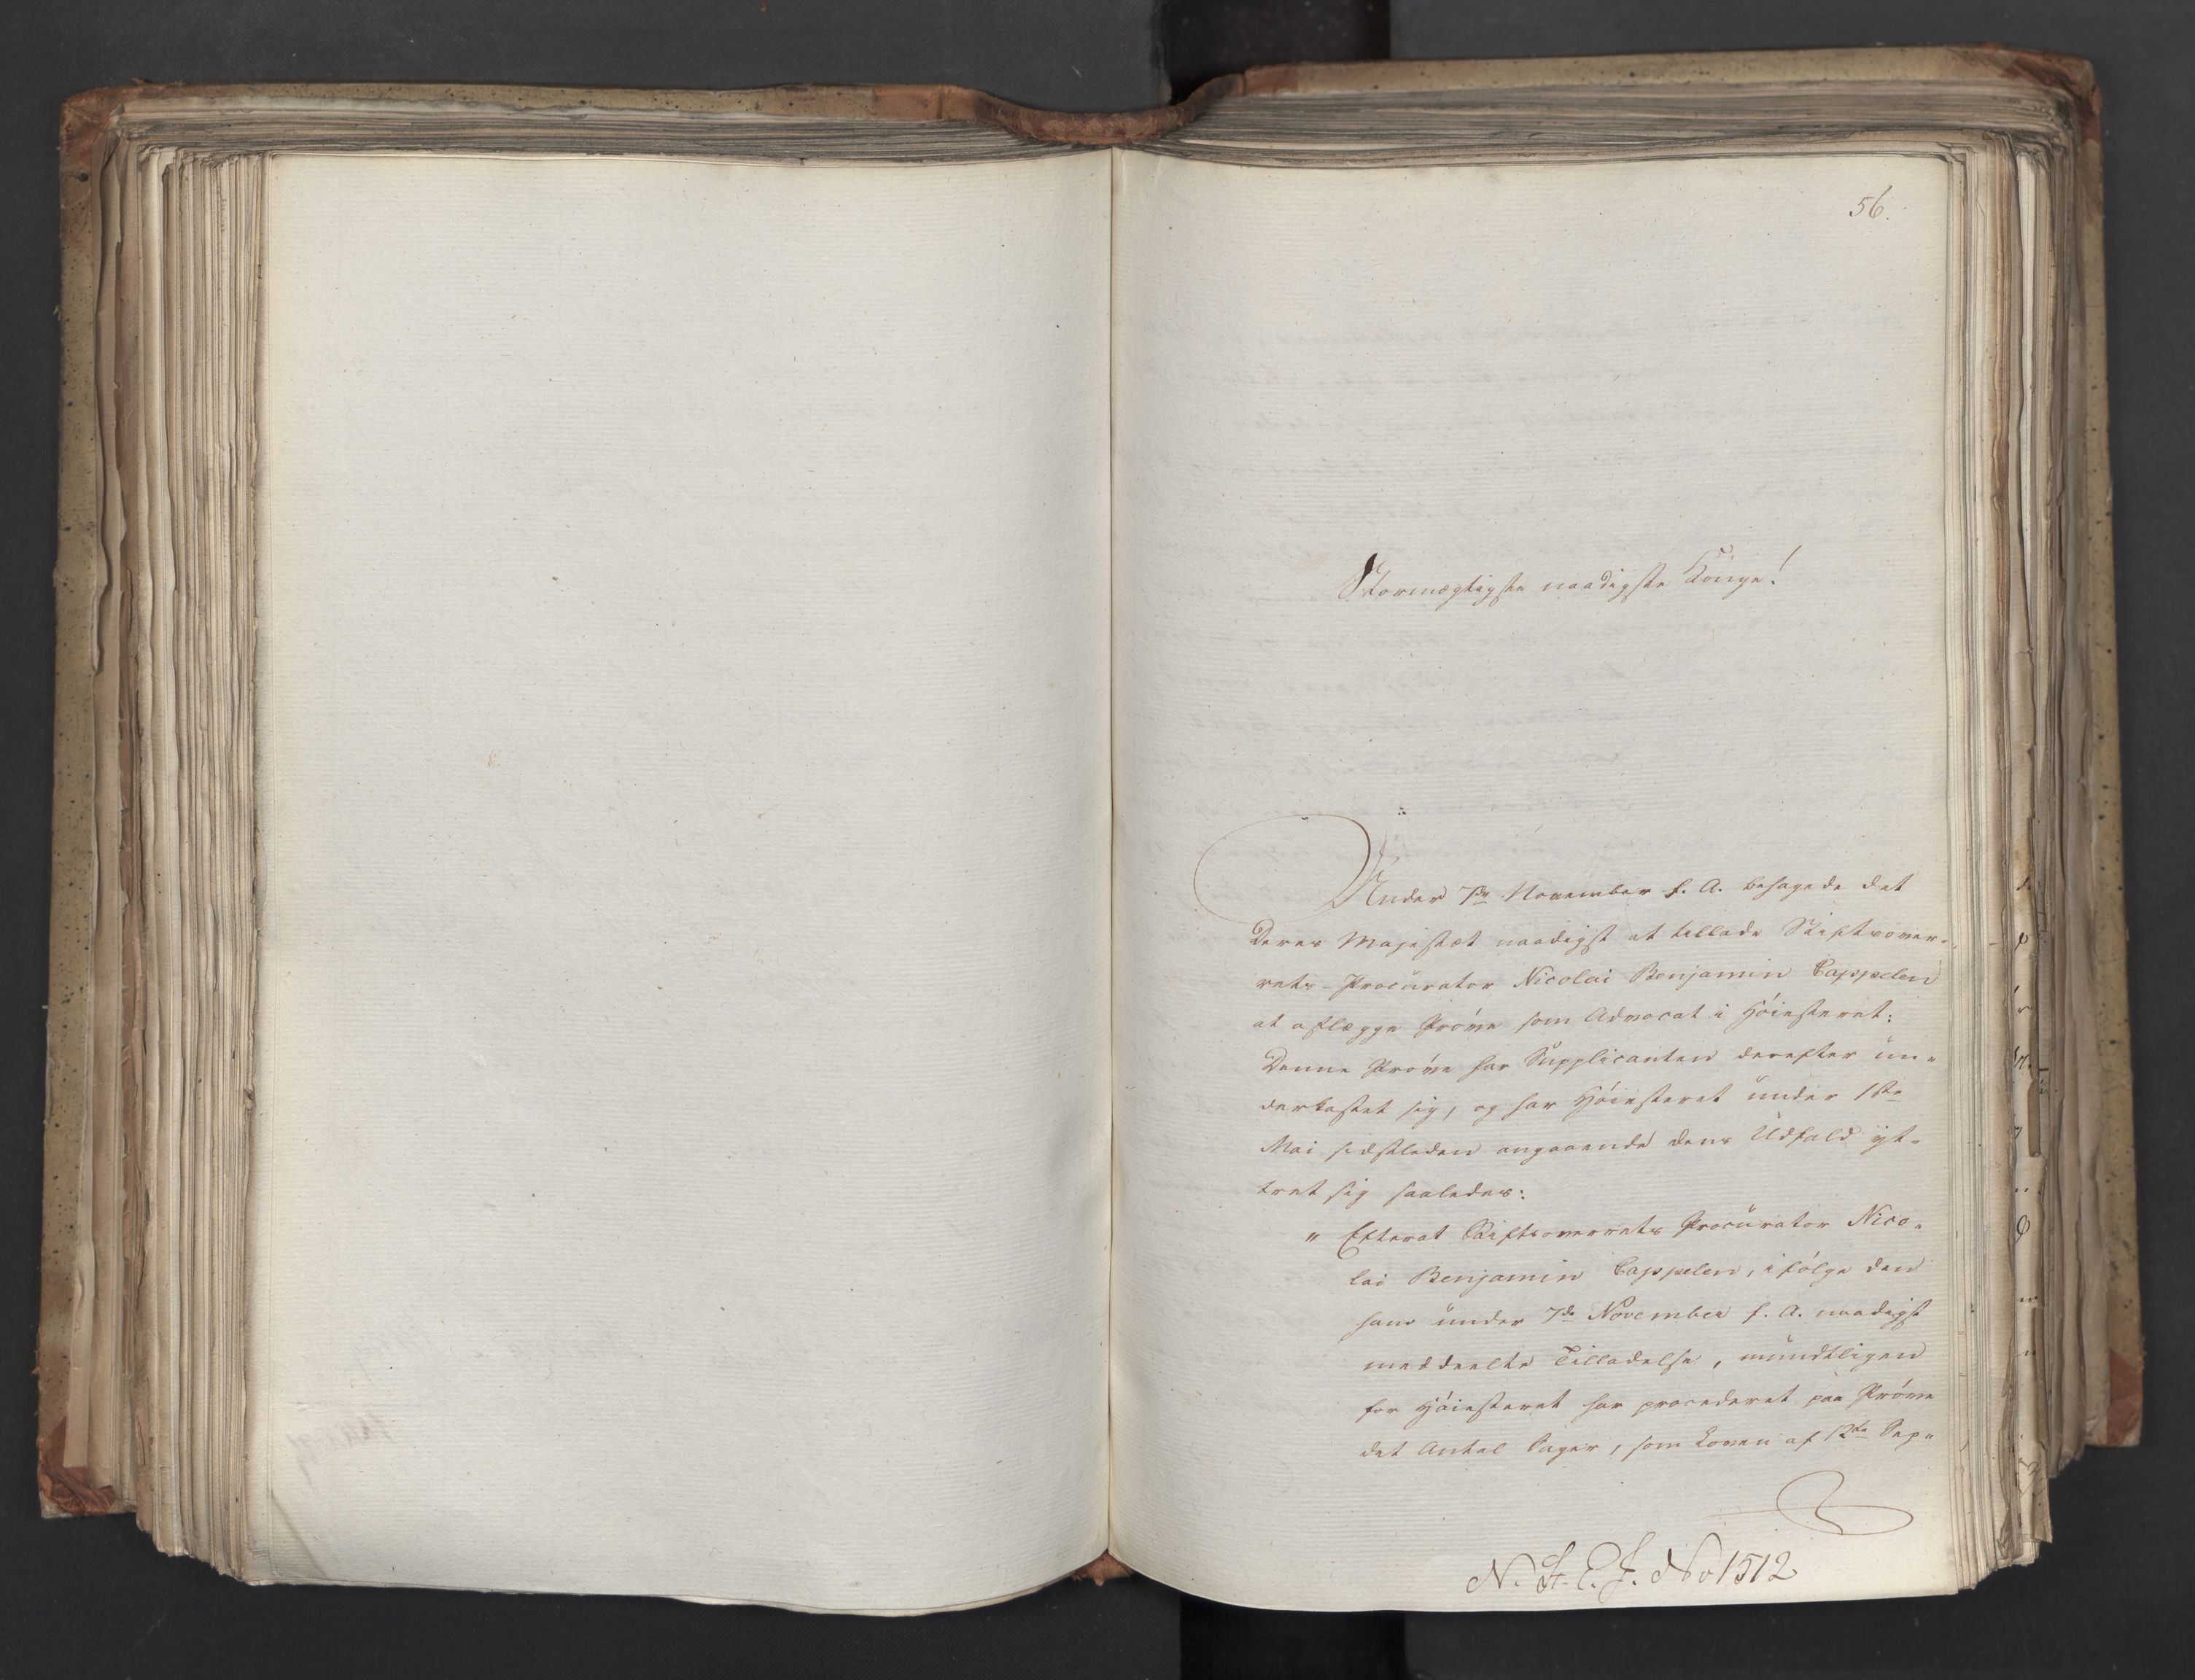 56.
Stormægtigste naadigste Konge!
Under 7de November f. A. behagede det
Deres Majestæt naadigst at tillade Stiftsover-
rets-Procurator Nicolai Benjamin Cappelen
at aflægge Prøve som Advocat i Høiesteret:
Denne Prøve har Supplicanten derefter un-
derkastet sig, og har Høiesteret under 1ste
Mai sidstleden angaaende dens Udfald yt-
tret sig saaledes:
" Efterat Stiftsoverrets Procurator Nico-
lai Benjamin Cappelen, ifølge den
ham under 7de November f. A. naadigst
meddeelte Tilladelse, mundtligen
for Høiesteret har procederet paa Prøve
det Antal Sager, som Loven af 12te Sep-
N. St. E. J. No 1512